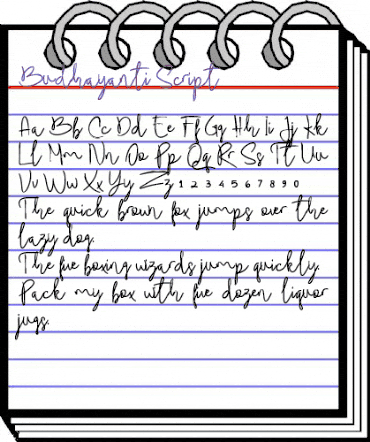 Budhayanti Script
Aa Bb Cc Dd Ee Ff Gg Hh Ii Jj Kk
Ll Mm Nn Oo Pp Qq Rr Ss Tt Uu
Vv Ww Xx Yy Zz 1 2 3 4 5 6 7 8 9 0
The quick brown fox jumps over the
lazy dog.
The five boxing wizards jump quickly.
Pack my box with five dozen liquor
jugs.